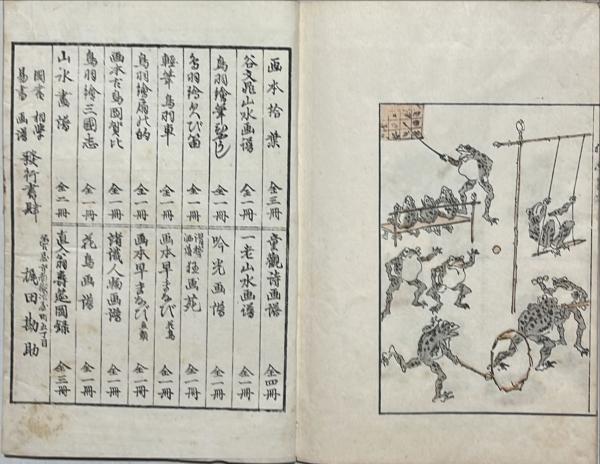 画本拾葉 全三冊
谷文晁山水画譜 全一冊
鳥羽繪筆びやうし 全一冊
鳥羽繪欠び留 全一冊
軽筆鳥羽車 全一冊
鳥羽繪扇の的 全一冊
画本古鳥図賀比 全一冊
鳥羽繪三國志 全一冊
山水畫譜 全二冊
童觀詩画譜 全四冊
一老山水画譜 全一冊
吟光画譜 全一冊
滑稽洒落狂画苑 全一冊
画本早まなび 花鳥 全一冊
画本早まなび 全一冊
諸職人物画譜 全一冊
花鳥画譜 全一冊
直入翁壽筵圖録 全三冊
圖書 相學
易書 画譜
發行書肆
梶田勘助